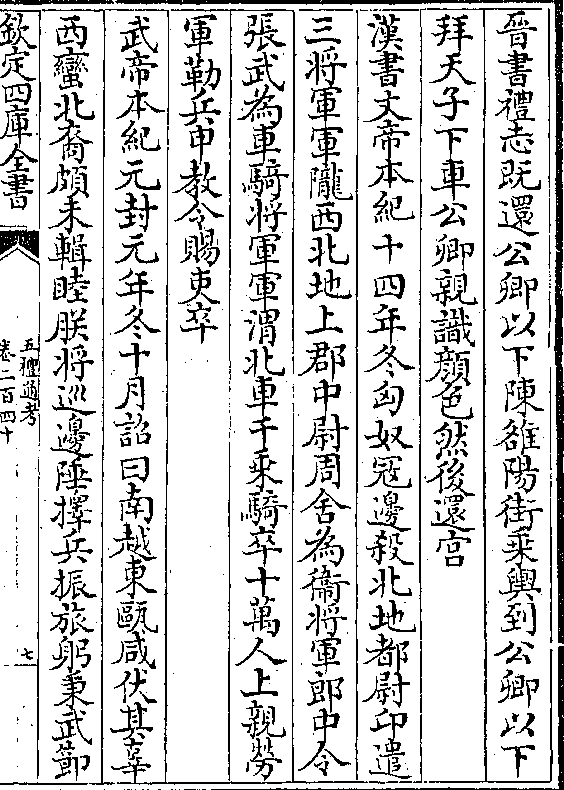 晉書禮志既還公卿以下陳雒陽街乗輿到公卿以下
拜天子下車公卿親識顔色然後還宫
漢書文帝本紀十四年冬匈奴寇邊殺北地都尉卬遣
三将軍軍隴西北地上郡中尉周舍為衞将軍郎中令
張武為車騎将軍軍渭北車千乗騎卒十萬人上親勞
軍勒兵申教令賜吏卒
武帝本紀元封元年冬十月詔曰南越東甌咸伏其辜
西蠻北裔頗未輯睦朕将巡邊陲擇兵振旅躬秉武節
欽定四庫全書
五禮通考
卷二百四十
七